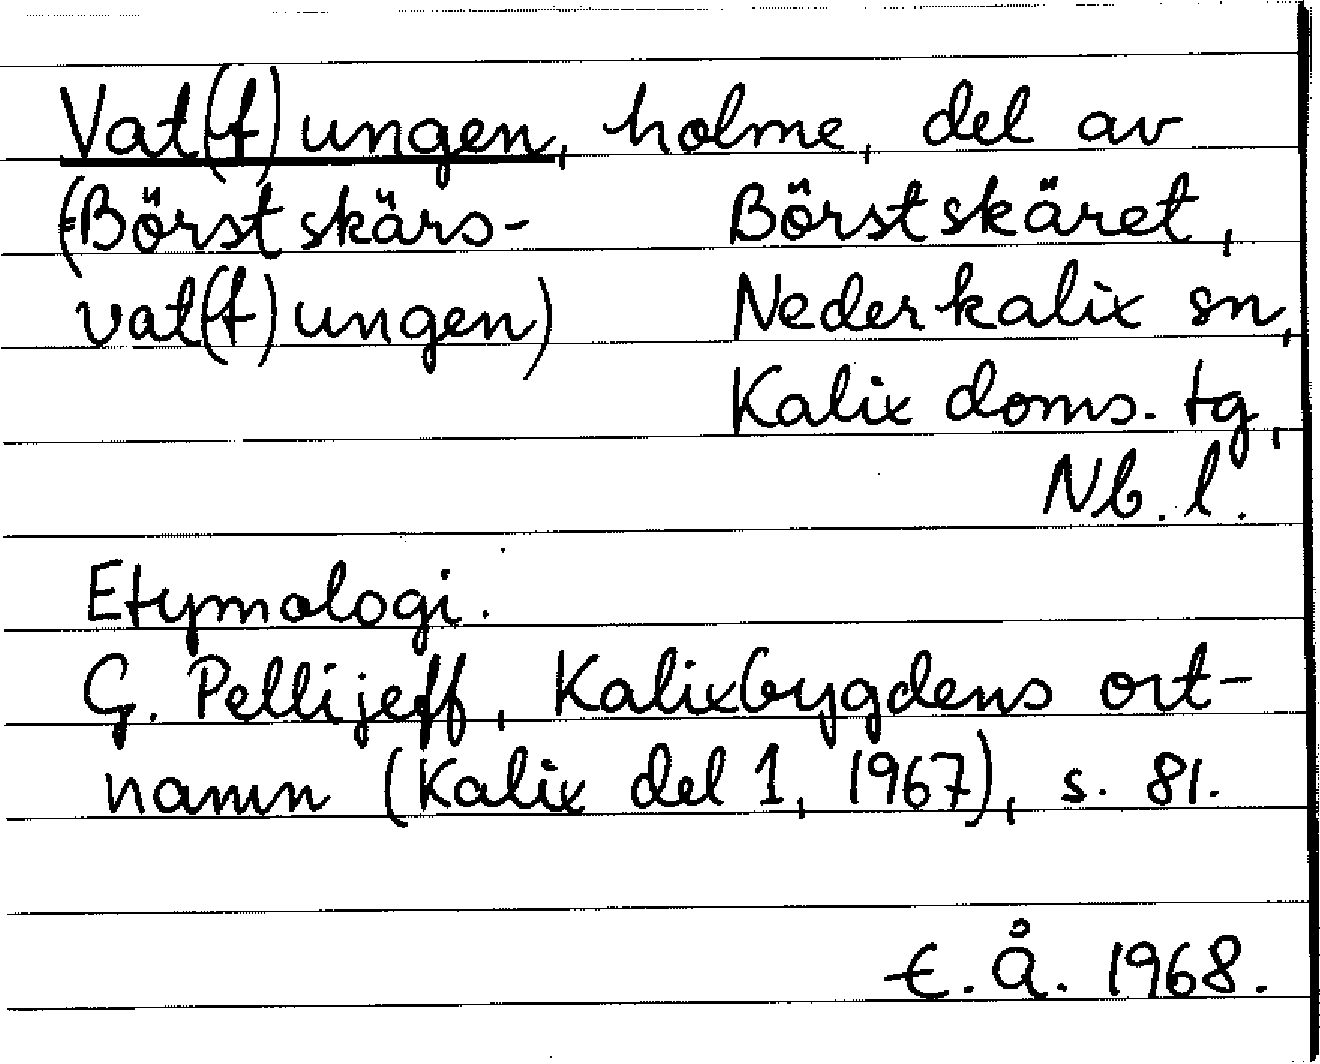 Vat(t)ungen, holme, del av
(Börstskärs- Börstskäret,
vat(t)ungen) Nederkalix sn,
Kalix doms. tg,
Nb. l.
Etymologi.
G. Pellijeff, Kalixbygdens ort-
namn (Kalix del 1, 1967), s. 81.
E. Å. 1968.